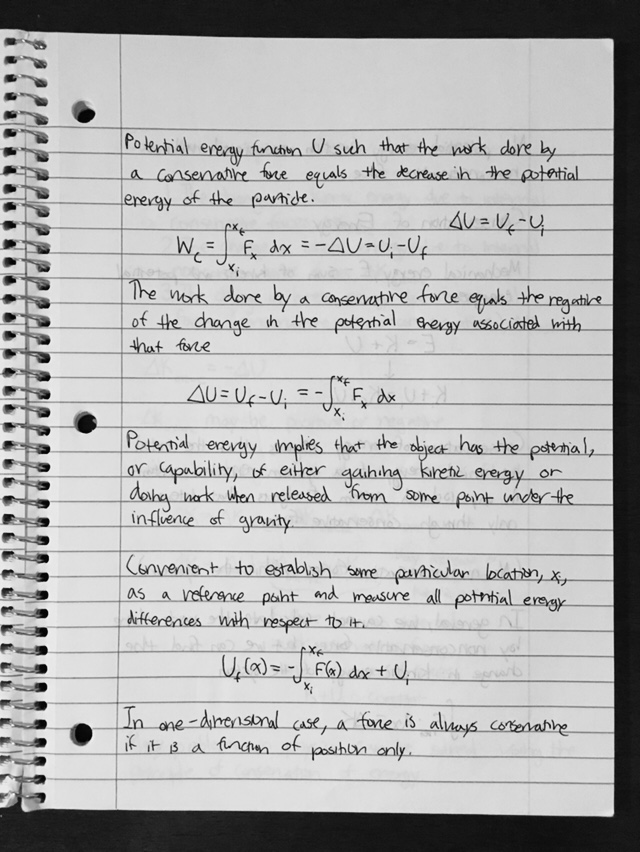 Potential energy function U such that the work done by
a conservative force equals the decrease in the potential
energy of the particle.
ΔU = U_f - U_i
W_c = ∫_{x_i}^{x_f} F_x dx = -ΔU = U_i - U_f
The work done by a conservative force equals the negative
of the change in the potential energy associated with
that force
ΔU = U_f - U_i = -∫_{x_i}^{x_f} F_x dx
Potential energy implies that the object has the potential,
or capability, of either gaining kinetic energy or
doing work when released from some point under the
influence of gravity
Convenient to establish some particular location, x_i,
as a reference point and measure all potential energy
differences with respect to it.
U_f(x) = -∫_{x_i}^{x_f} F(x) dx + U_i
In one-dimensional case, a force is always conservative
if it is a function of position only.